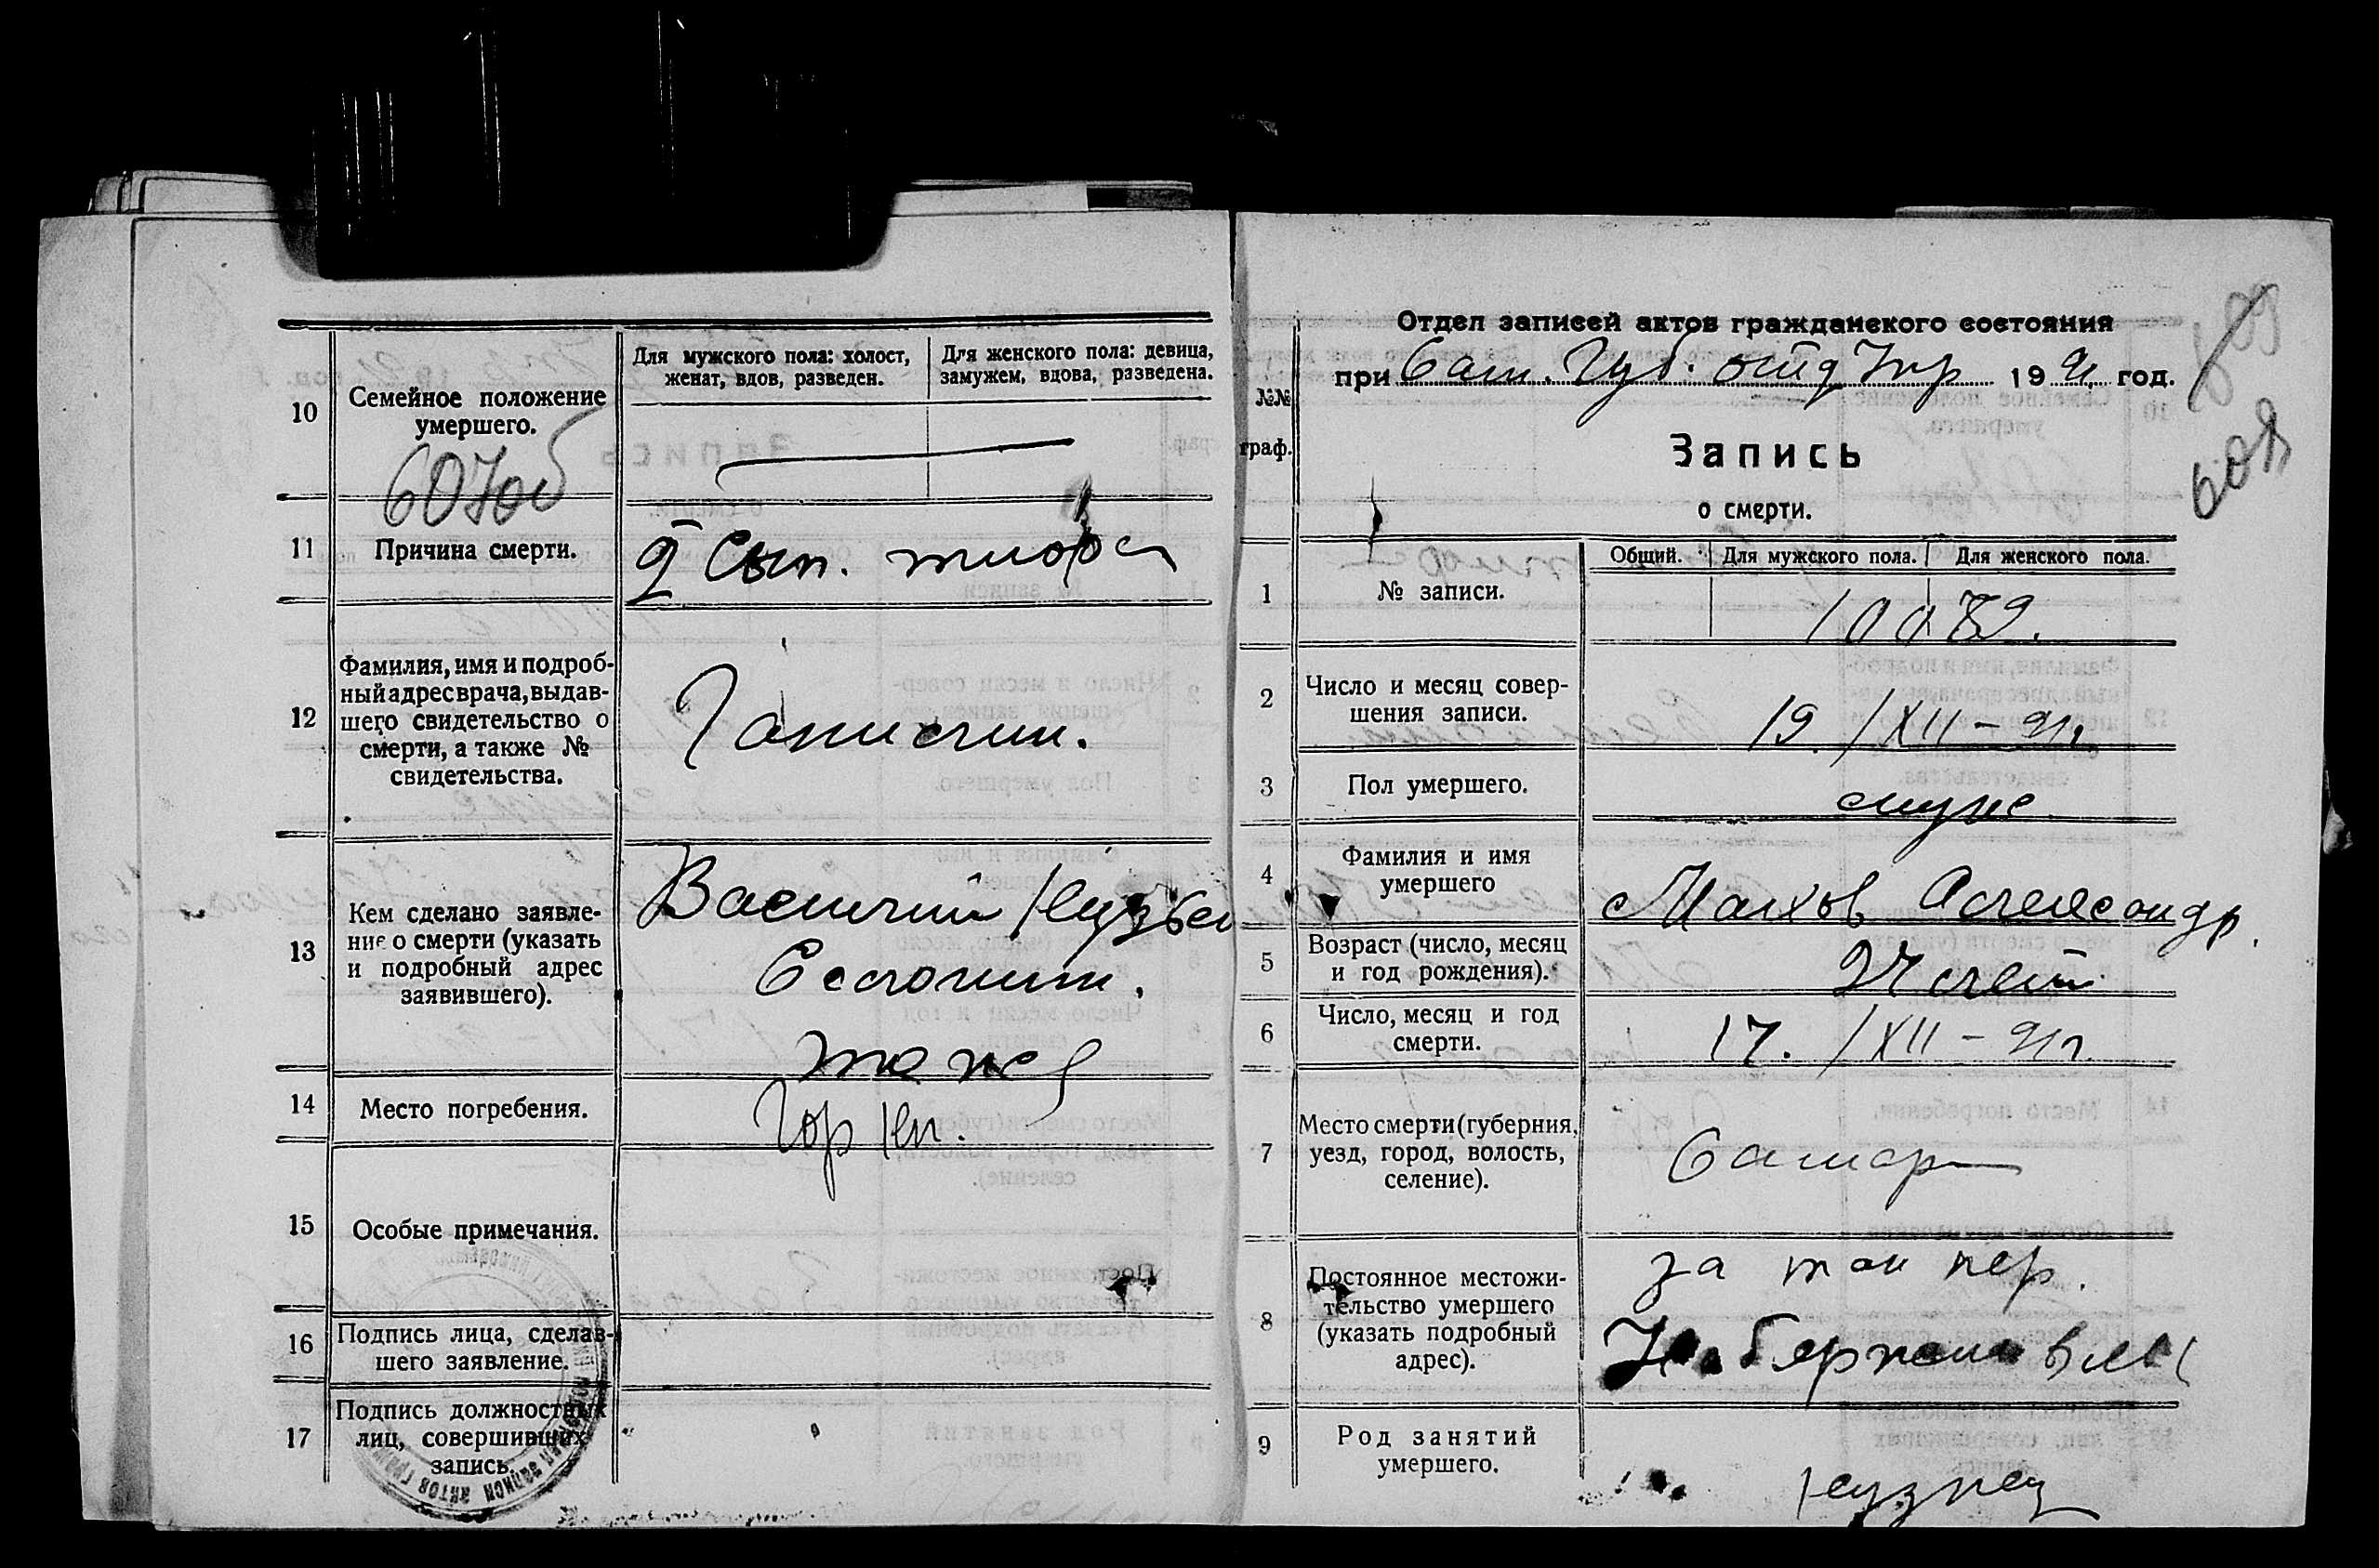 10
Семейное положение
умершего.
Для мужского пола: холост,
женат, вдов, разведен.
Для женского пола: девица,
замужем, вдова, разведена.
11
Причина смерти.
Сып. тифа
12
Фамилия, имя и подроб-
ный адрес врача, выдав-
шего свидетельство о
смерти, а также №
свидетельства.
13
Кем сделано заявле-
ние о смерти (указать
и подробный адрес
заявившего).
Василий Кузьм
тоже
14
Место погребения.
Гор кл.
15
Особые примечания.
16
Подпись лица, сделав-
шего заявление.
17
Подпись должностных
лиц, совершивших
запись.
Отдел записей актов гражданского состояния
при Сам. Губ. отд Упр 1921 год.
609
№№
граф.
Запись
о смерти.
1
№ записи.
Общий.
Для мужского пола.
Для женского пола.
10089.
2
Число и месяц совер-
шения записи.
19/XII-21г.
3
Пол умершего.
муж
4
Фамилия и имя
умершего
Махов Александр
5
Возраст (число, месяц
и год рождения).
24 лет
6
Число, месяц и год
смерти.
17./XII-21г.
7
Место смерти (губерния,
уезд, город, волость,
селение).
Самар
8
Постоянное местожи-
тельство умершего
(указать подробный
адрес).
пер.
9
Род занятий
умершего.
кузнец